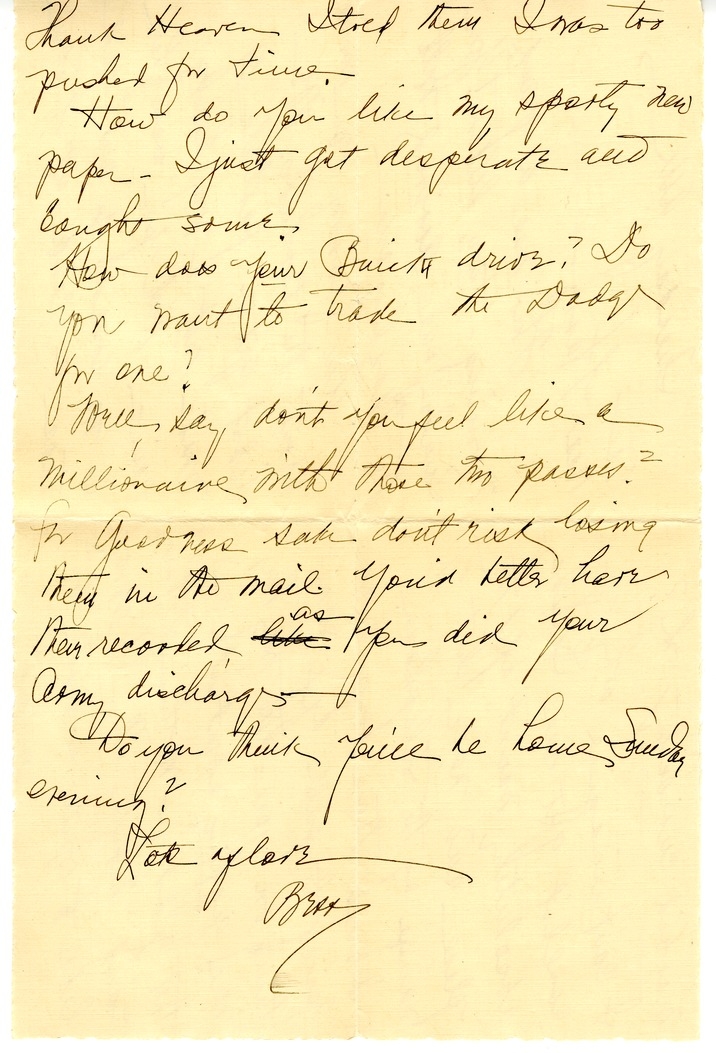 Thank Heaven I told them I was too
pushed for time.
How do you like my sporty new
paper - I just got desperate and
bought some.
How does your Buick drive? Do
you want to trade the Dodge
for one?
Well, say, don't you feel like a
millionaire with those two passes?
For Goodness sake don't risk losing
them in the mail. You'd better have
them recorded like as you did your
Army discharge -
Do you think you'll be home Sunday
evening?
Lots of love
Bess